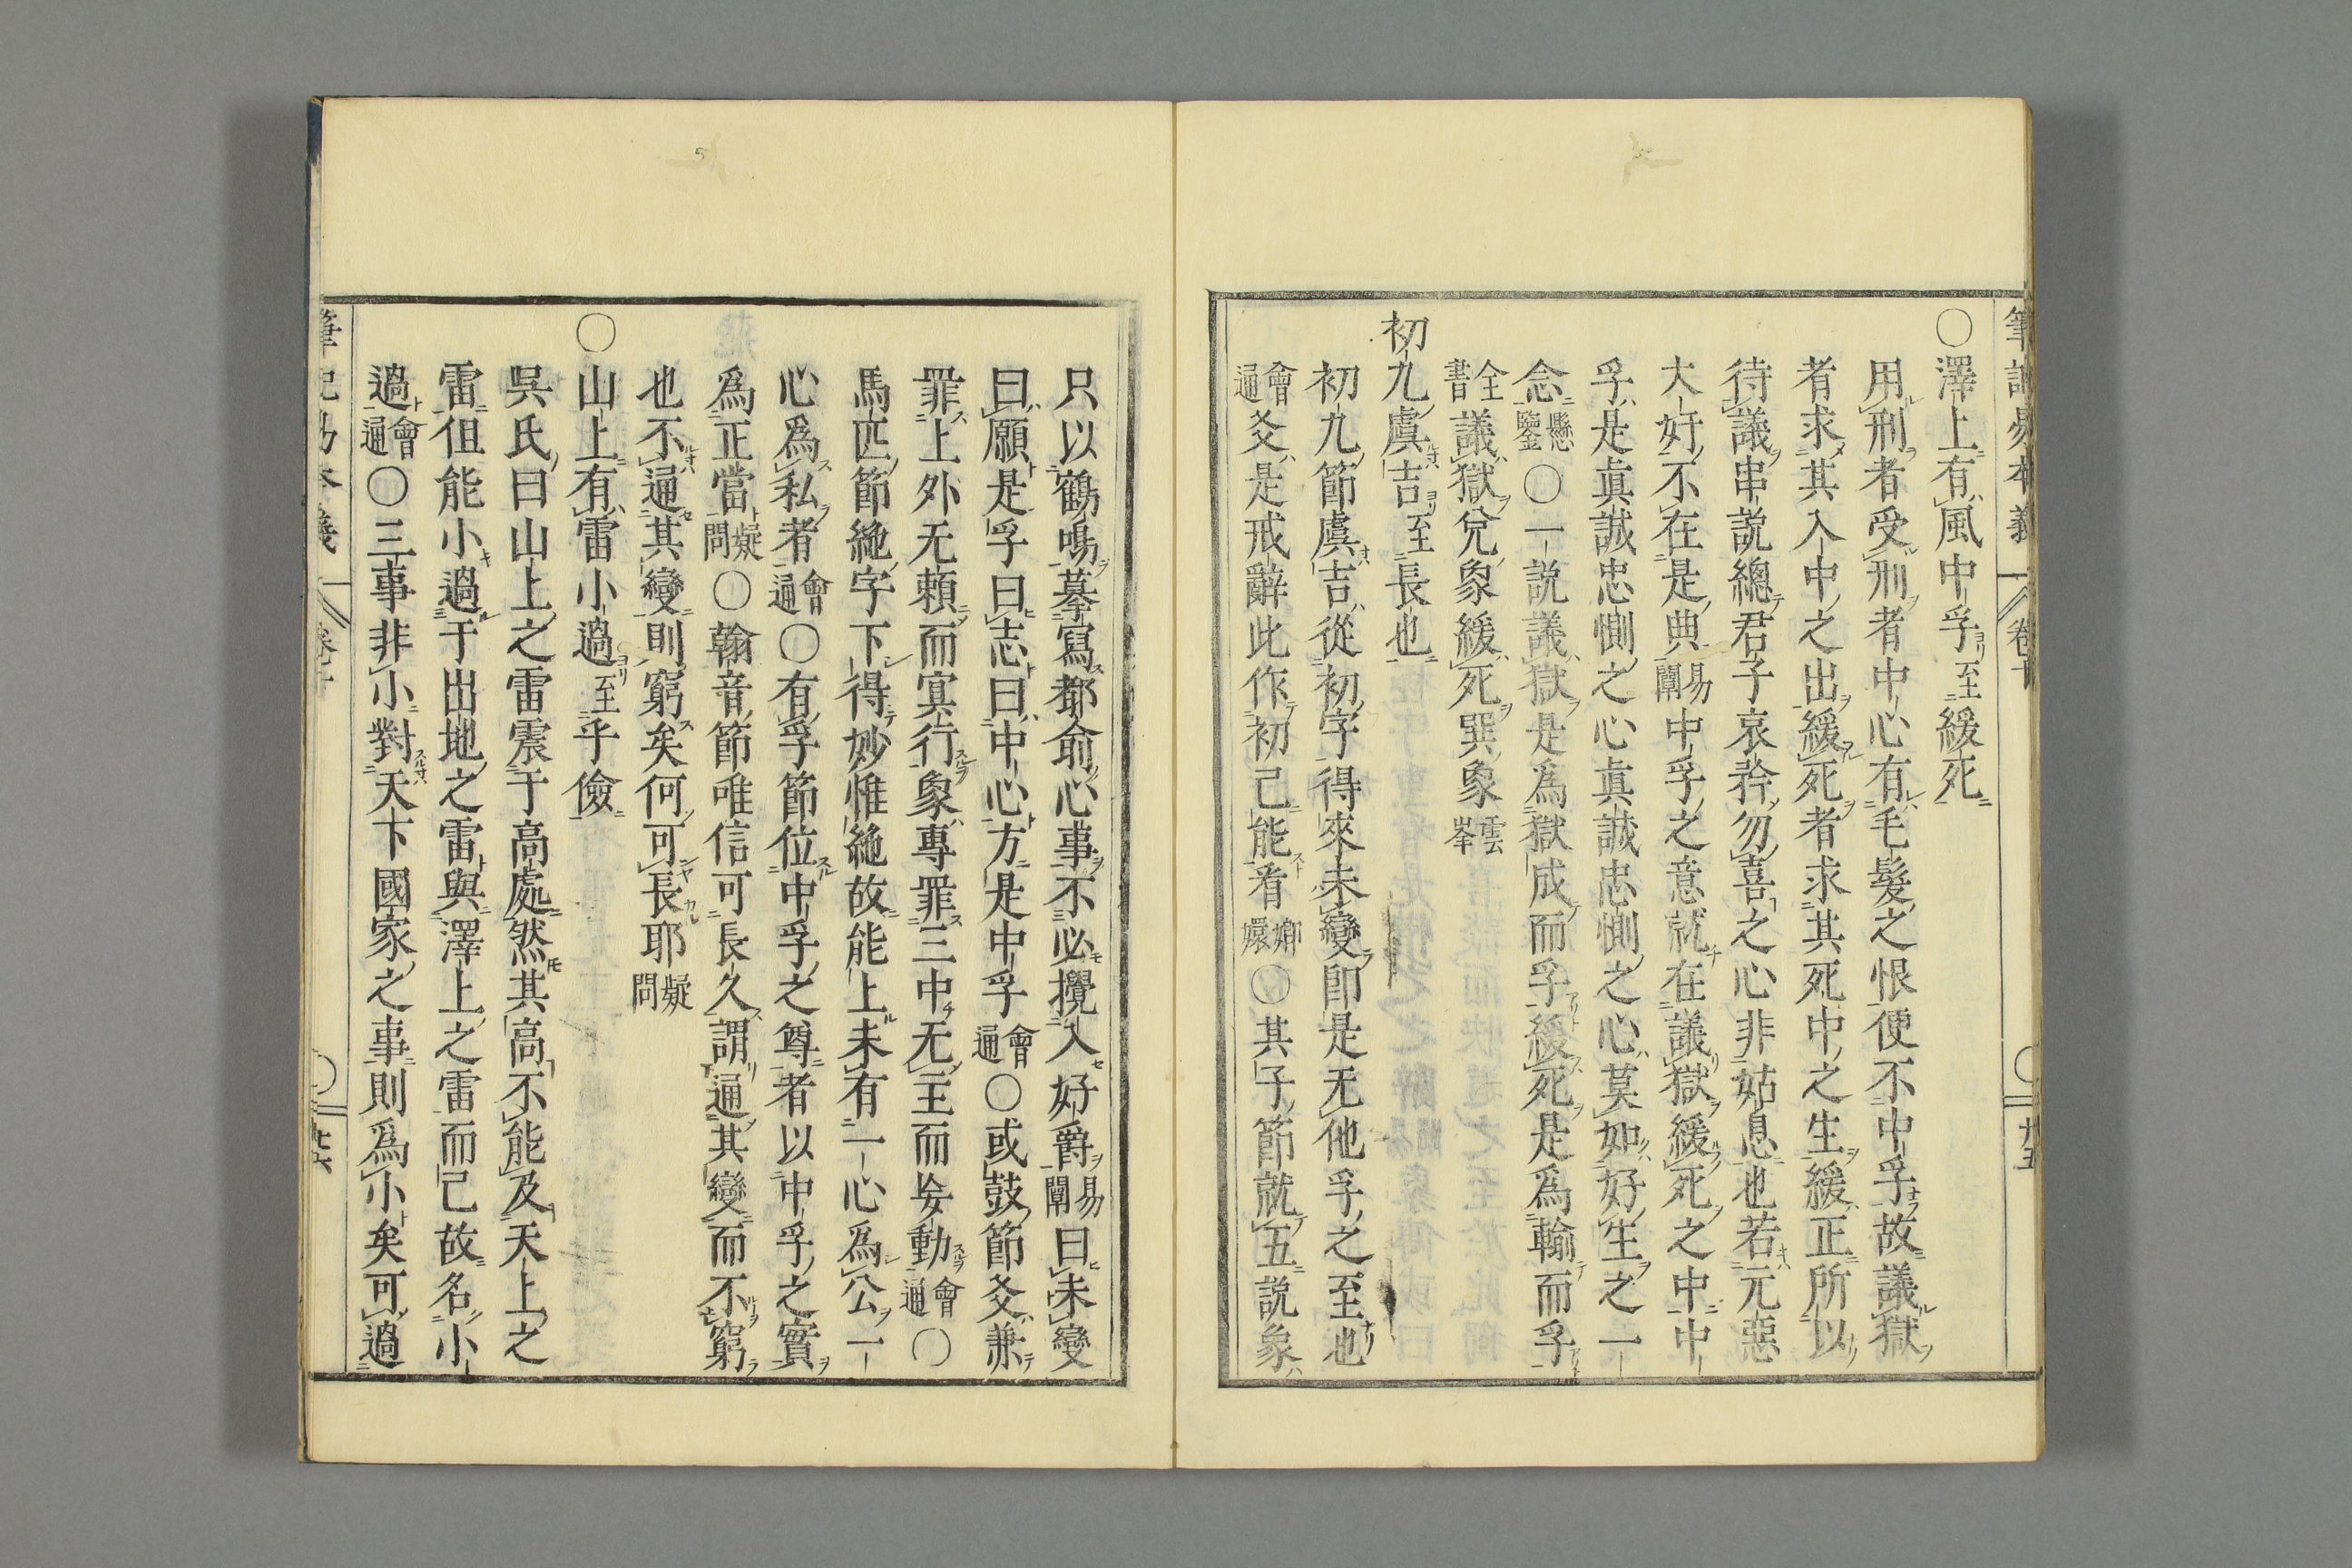 筆記易本義 卷十 廿五
○澤上有風中孚至緩死
用刑者受刑者中心有毛髮之恨便不中孚故議獄
者求其入中之出緩死者求其死中之生緩正所以
待議串說總君子哀矜勿喜之心非姑息也若元惡
大奸不在是典易闡中孚之意就在議獄緩死之中中
孚是眞誠忠惻之心眞誠忠惻之心莫如好生之一
念懸鑒○一說議獄是爲獄成而孚緩死是爲輸而孚
全書議獄兌象緩死巽象雲峯
初九虞吉至長也
初九節虞吉從初字得來未變卽是无他孚之至也
會通爻是戒辭此作初已能看嫏嬛○其子節就五說象
只以鶴鳴摹寫都俞心事不必攪入好爵易闡曰未變
曰願是孚曰志曰中心方是中孚會通○或鼓節爻兼
罪上外无賴而冥行象專罪三中无主而妄動會通○
馬匹節絶字下得妙惟絶故能上未有一心爲公一
心爲私者會通○有孚節位中孚之尊者以中孚之實
爲正當疑問○翰音節唯信可長久謂通其變而不窮
也不通其變則窮矣何可長耶疑問
○山上有雷小過至乎儉
吳氏曰山上之雷震于高處然其高不能及天上之
雷但能小過于出地之雷與澤上之雷而已故名小
過會通○三事非小對天下國家之事則爲小矣可過
筆記易本義 卷十 廿六